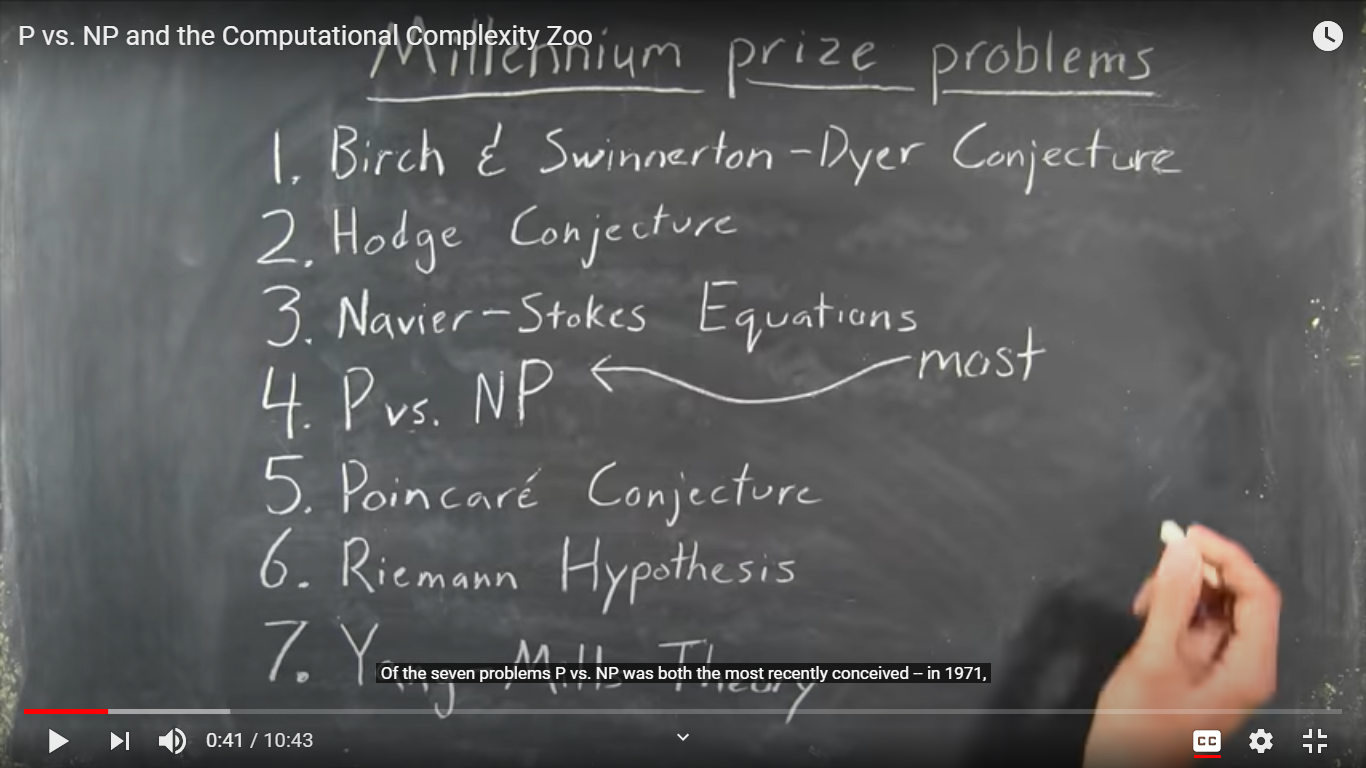 P vs. NP and the Computational Complexity Zoo
Millennium prize problems
1. Birch & Swinnerton-Dyer Conjecture
2. Hodge Conjecture
3. Navier-Stokes Equations
most
4. P vs. NP
5. Poincaré Conjecture
6. Riemann Hypothesis
7. Yang-Mills Theory
Of the seven problems P vs. NP was both the most recently conceived -- in 1971,
0:41 / 10:43
CC